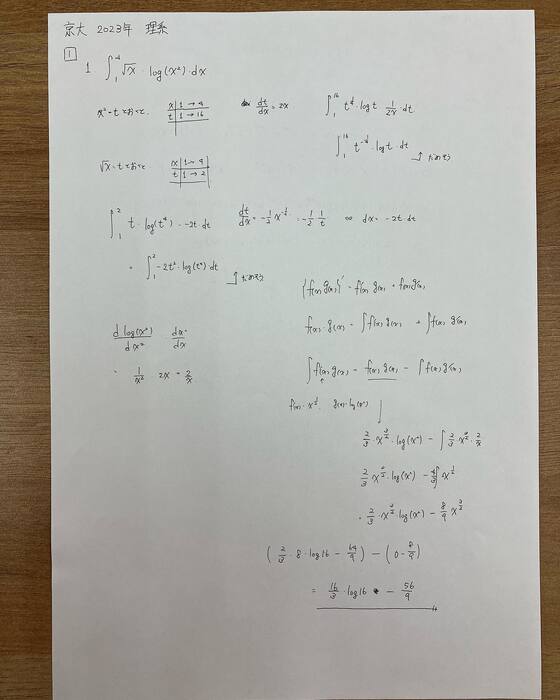 京大 2023年 理系
1
1 ∫₁⁴ √x · log(x²) · dx
x² = t とおくと.
x | 1 → 4
t | 1 → 16
dt/dx = 2x
∫₁¹⁶ t^{1/4} · log t · 1/2x · dt
∫₁¹⁶ t^{-1/4} · log t · dt
√x = t とおくと
x | 1 → 4
t | 1 → 2
∫₁² t · log(t⁴) · -2t · dt
dt/dx = -1/2 x^{-1/2} = -1/2 · 1/t
dx = -2t · dt
= ∫₁² -2t² · log(t⁴) dt
{f(x) g(x)}' = f'(x) g(x) + f(x) g'(x)
f(x) · g(x) = ∫ f'(x) g(x) + ∫ f(x) g'(x)
∫ f'(x) g(x) = f(x) g(x) - ∫ f(x) g'(x)
d log(x²)/dx² · dx²/dx
= 1/x² · 2x = 2/x
f'(x) = x^{1/2} g(x) = log(x²)
2/3 · x^{3/2} · log(x²) - ∫ 2/3 · x^{3/2} · 2/x
2/3 · x^{3/2} · log(x²) - 4/3 ∫ x^{1/2}
= 2/3 · x^{3/2} · log(x²) - 8/9 x^{3/2}
(2/3 · 8 · log 16 - 64/9) - (0 - 8/9)
= 16/3 · log 16 - 56/9